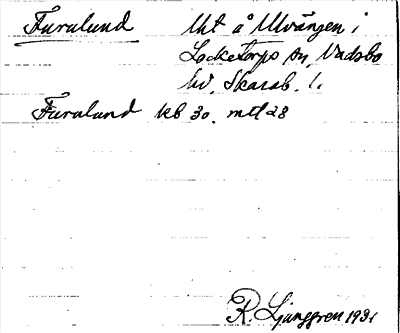 Furulund Uht å Ulvängen i
Locketorps sn, Vadsbo
hd. Skarab. l.
Furulund kb 30. mtl 28
R. Ljunggren 1931